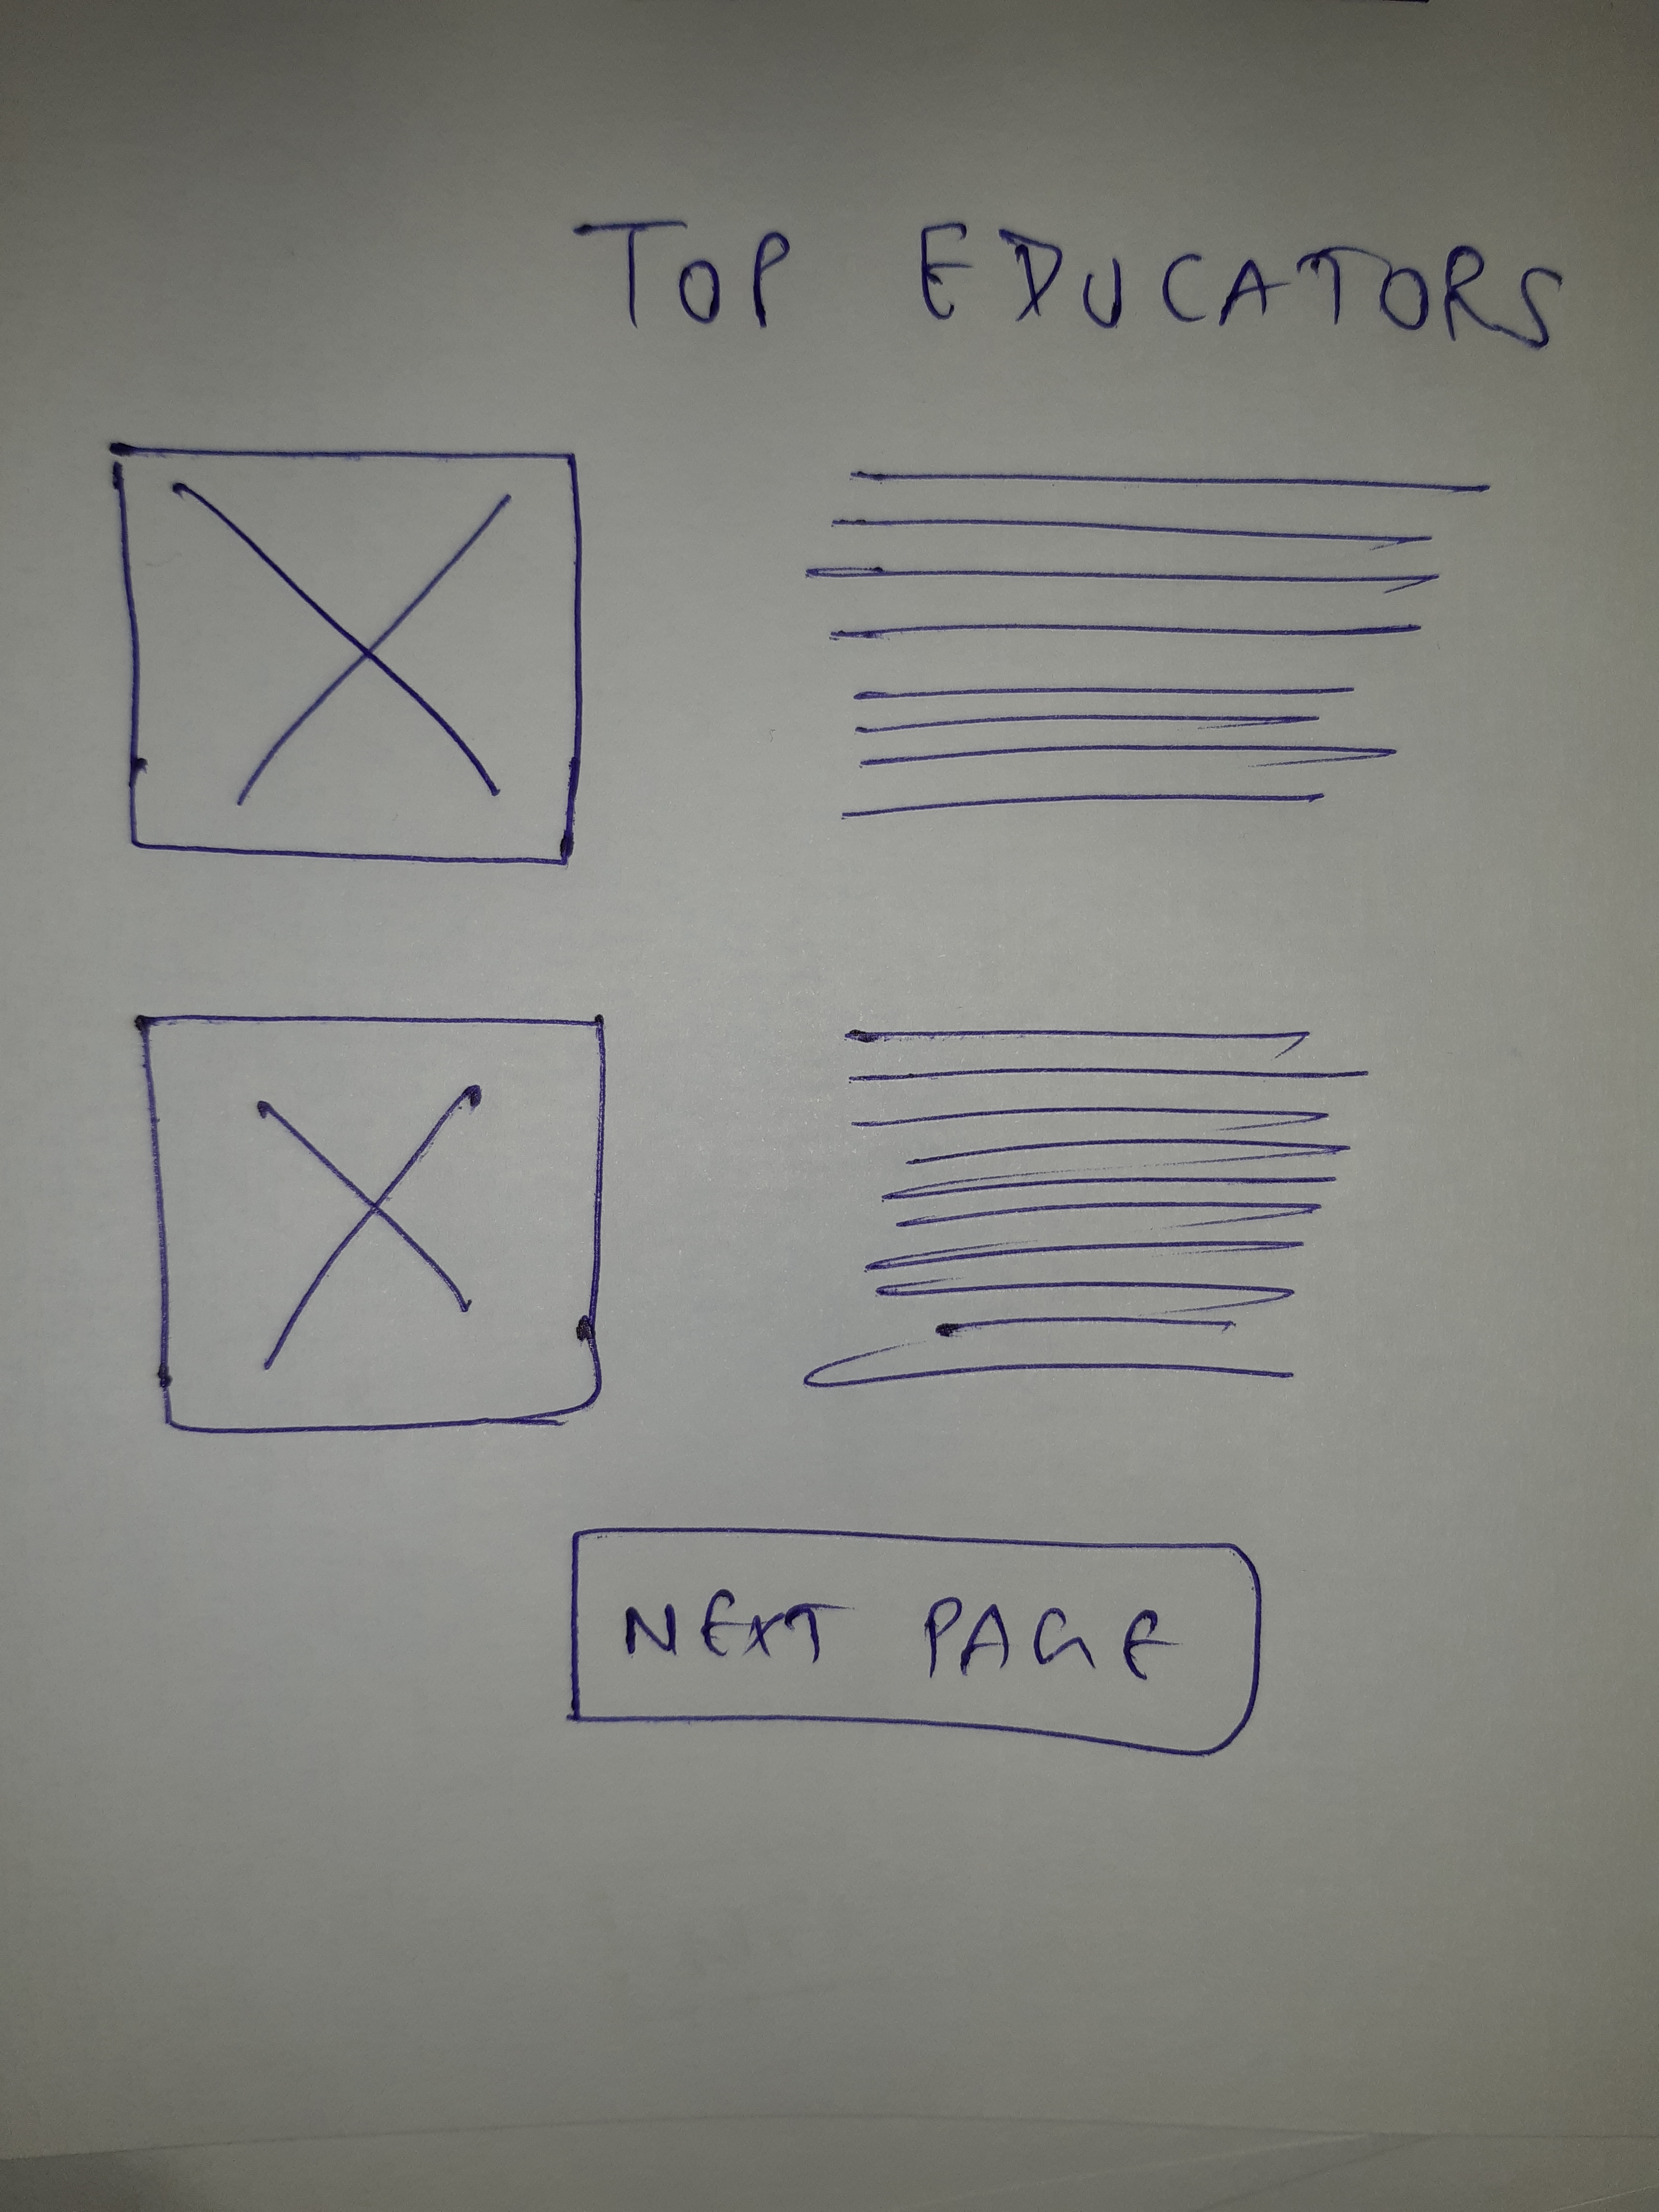 TOP EDUCATORS
NEXT PAGE